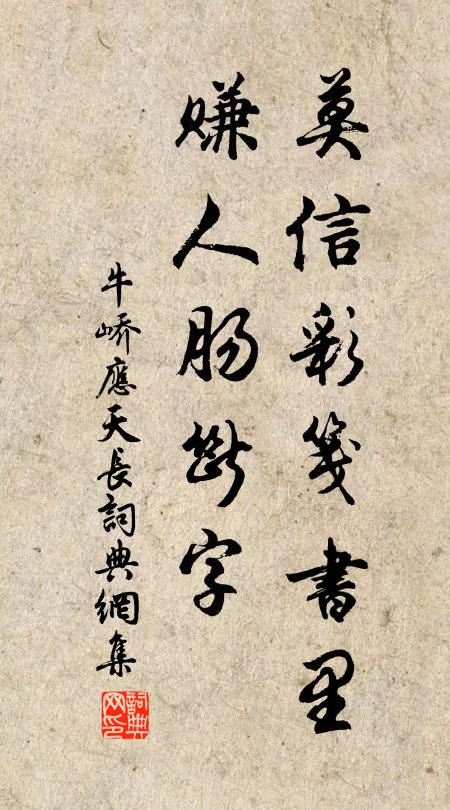 莫信彩箋書里
賺人腸斷字
牛嶠應天長詞典網集
詞典網印